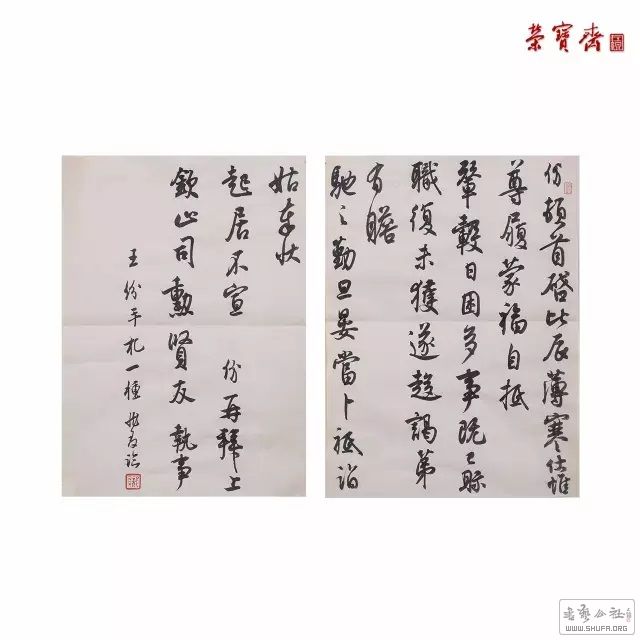 榮寶齋
份頓首啓比辰薄寒仕惟
尊履蒙福自抵
輦轂日困多事既已
職復未獲遂趨謁第
有瞻
馳之勤旦晏當卜祗詣
姑奉狀
起居不宣 份再拜上
欽止司勳賢友執事
王份平札一種
書藝公社
WWW.SHUFA.ORG